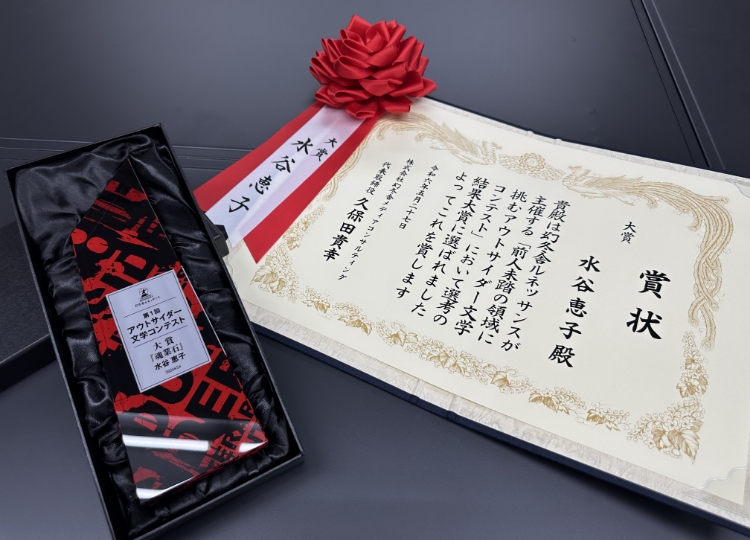 賞状
大賞
水谷恵子殿
貴殿は幻冬舎ルネッサンスが
主催する「前人未踏の領域に
挑むアウトサイダー文学
コンテスト」において選考の
結果大賞に選ばれました
よってこれを賞します
令和六年五月二十七日
株式会社幻冬舎メディアコンサルティング
代表取締役 久保田貴幸
大賞
水谷恵子
第1回
アウトサイダー
文学コンテスト
大賞
『魂業石』
水谷恵子